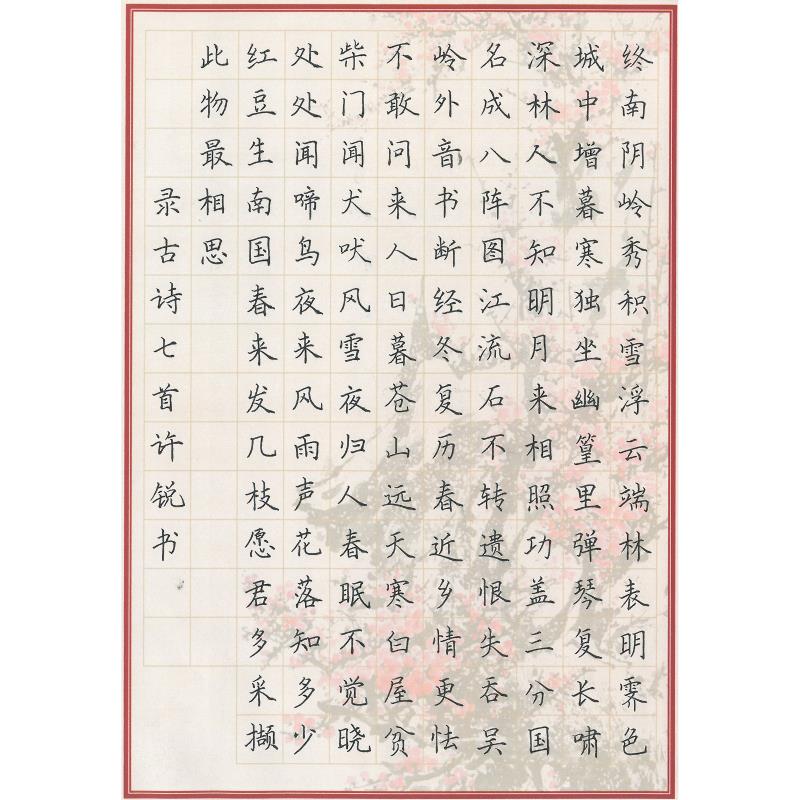 终南阴岭秀积雪浮云端林表明霁色
城中增暮寒独坐幽篁里弹琴复长啸
深林人不知明月来相照功盖三分国
名成八阵图江流石不转遗恨失吞吴
岭外音书断经冬复历春近乡情更怯
不敢问来人日暮苍山远天寒白屋贫
柴门闻犬吠风雪夜归人春眠不觉晓
处处闻啼鸟夜来风雨声花落知多少
红豆生南国春来发几枝愿君多采撷
此物最相思
录古诗七首许锐书